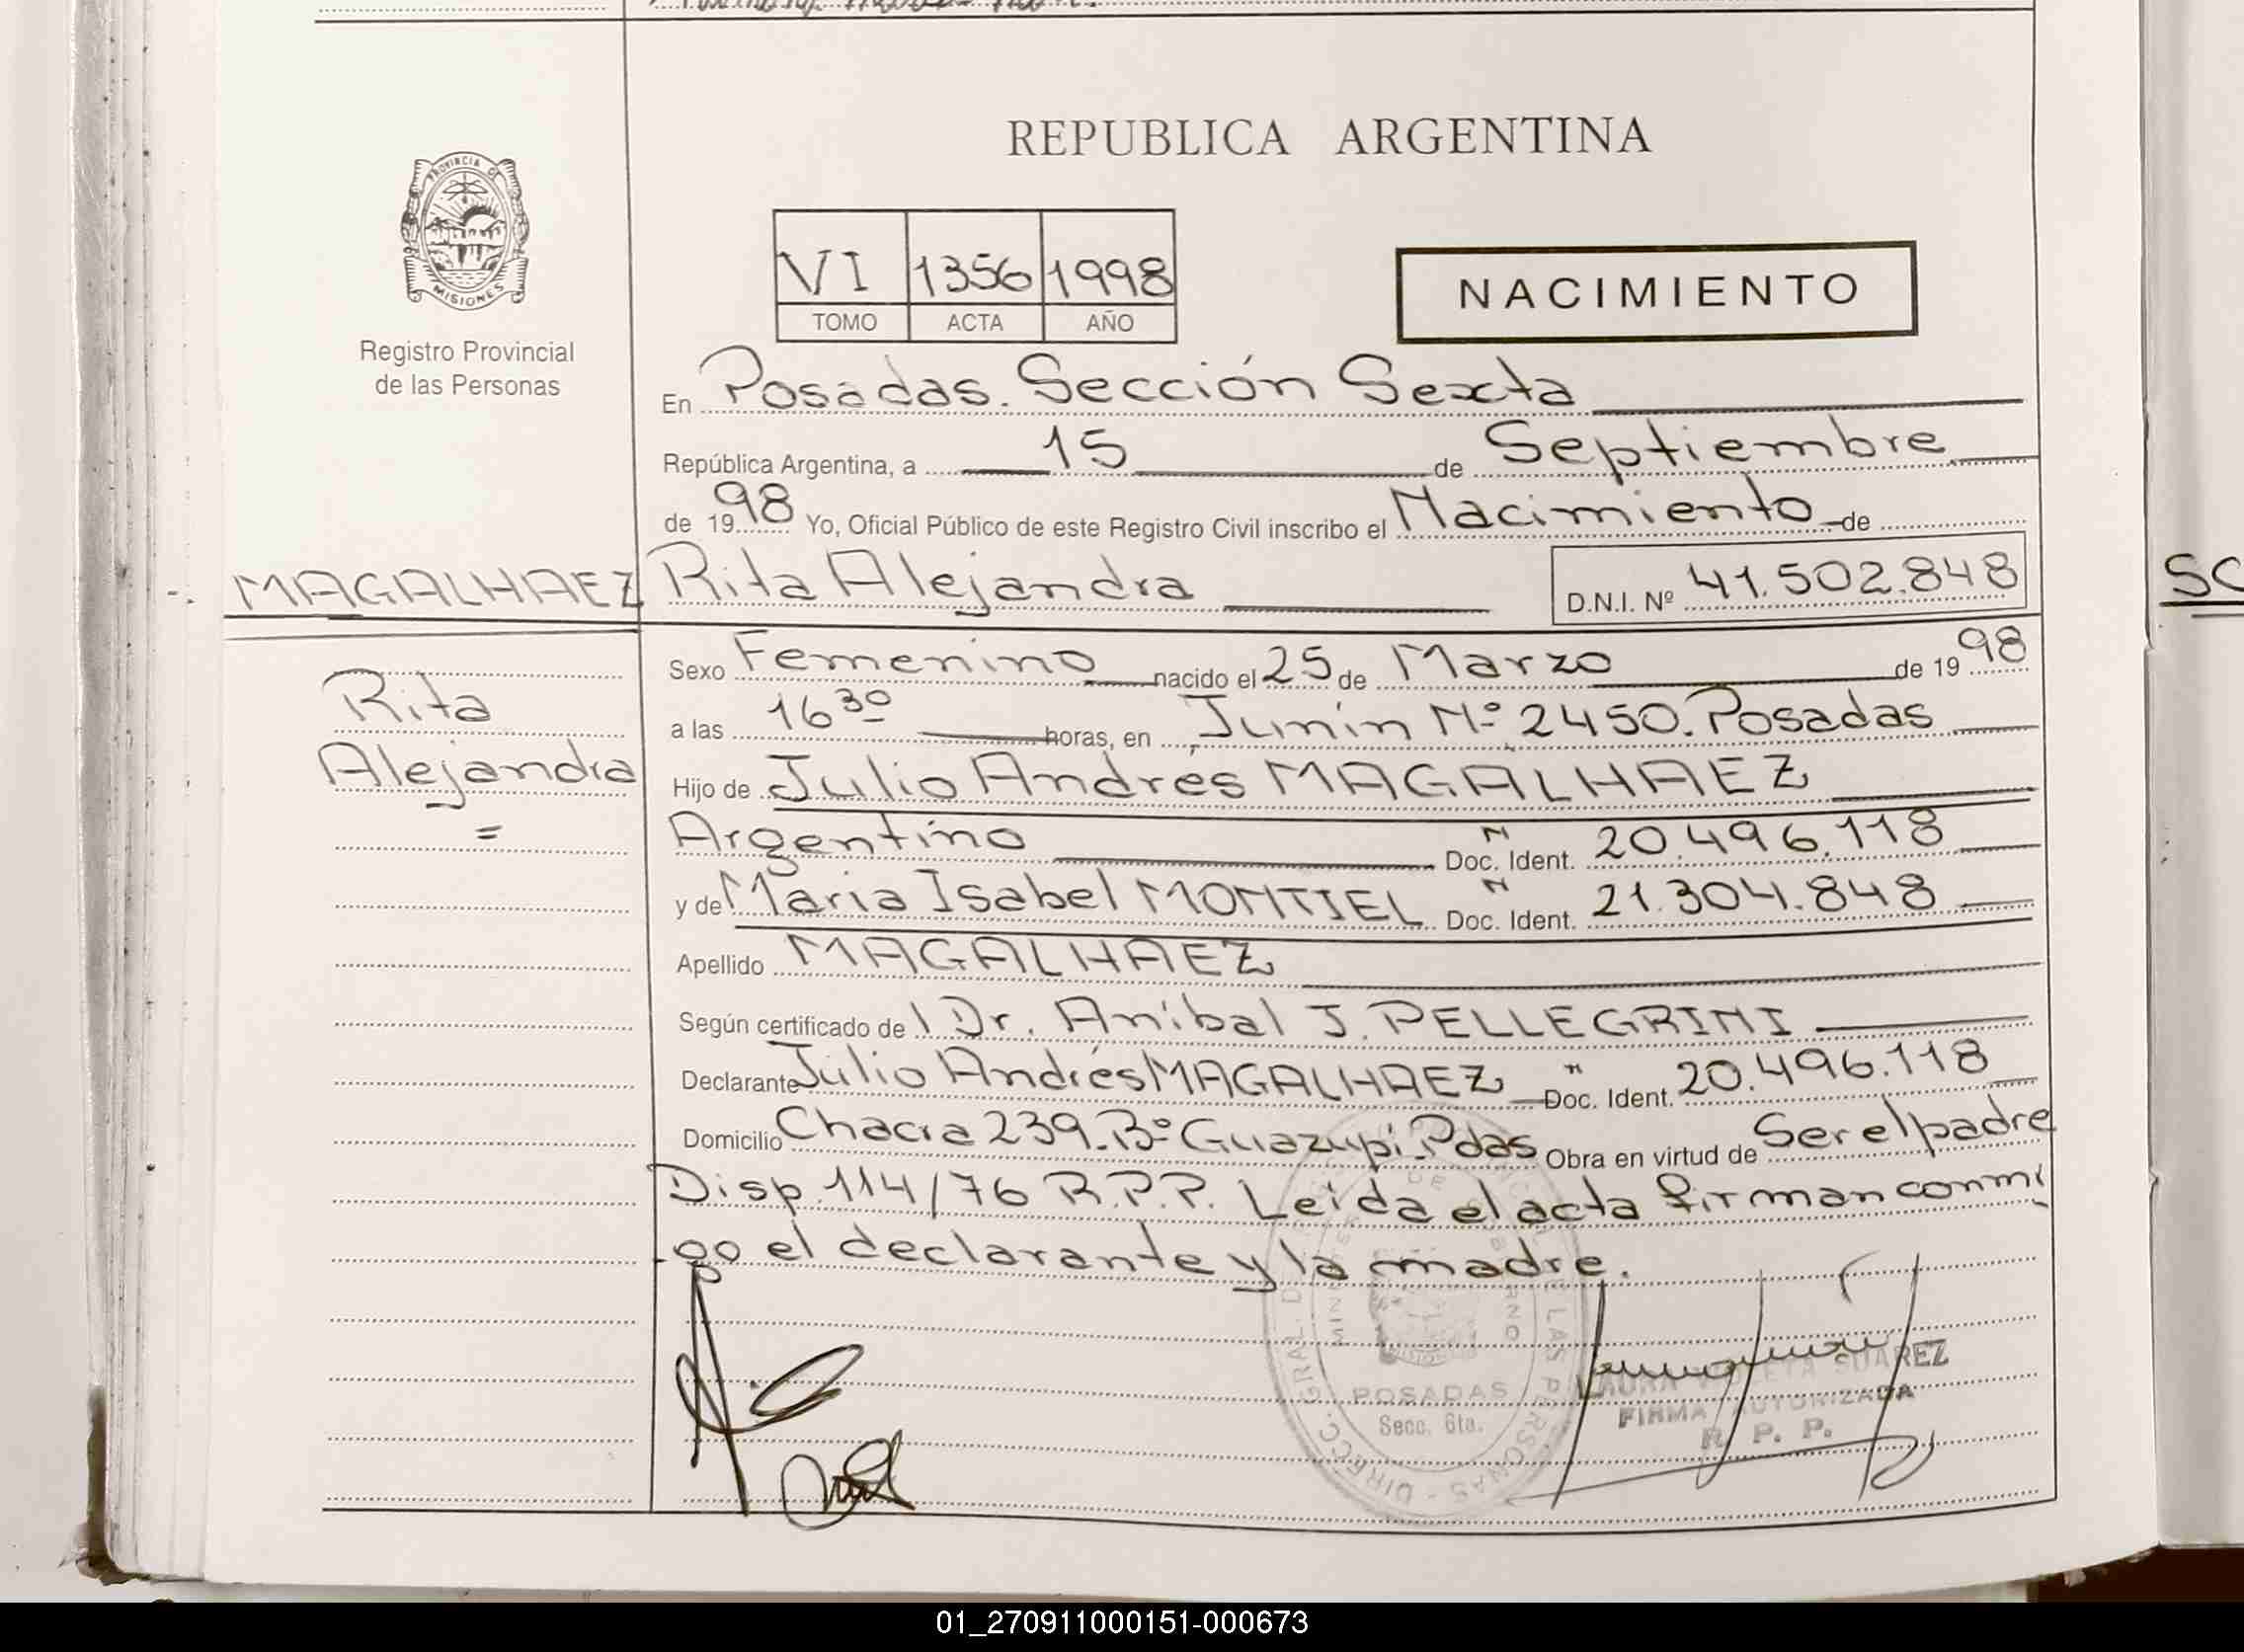 REPUBLICA ARGENTINA
PROVINCIA DE MISIONES
Registro Provincial
de las Personas
VI 1356 1998
TOMO ACTA AÑO
NACIMIENTO
En Posadas. Sección Sexta
República Argentina, a 15 de Septiembre
de 1998 Yo, Oficial Público de este Registro Civil inscribo el Nacimiento de
MAGALHAEZ Rita Alejandra D.N.I. Nº 41.502.848
SC
Rita
Alejandra
=
Sexo Femenino nacido el 25 de Marzo de 1998
a las 16 30 horas, en Junín Nº 2450. Posadas
Hijo de Julio Andrés MAGALHAEZ
Argentino Doc. Ident. N 20.496.118
y de Maria Isabel MONTIEL Doc. Ident. N 21.304.848
Apellido MAGALHAEZ
Según certificado de l Dr. Aníbal J. PELLEGRINI
Declarante Julio Andrés MAGALHAEZ Doc. Ident. " 20.496.118
Domicilio Chacra 239. Bº Guazupi. Pdas Obra en virtud de Ser el padre
Disp. 114/76 R.P.P. Leída el acta firman conmi
go el declarante y la madre.
POSADAS
Secc. 6ta.
LAURA SUAREZ
FIRMA AUTORIZADA
R. P. P.
01_270911000151-000673